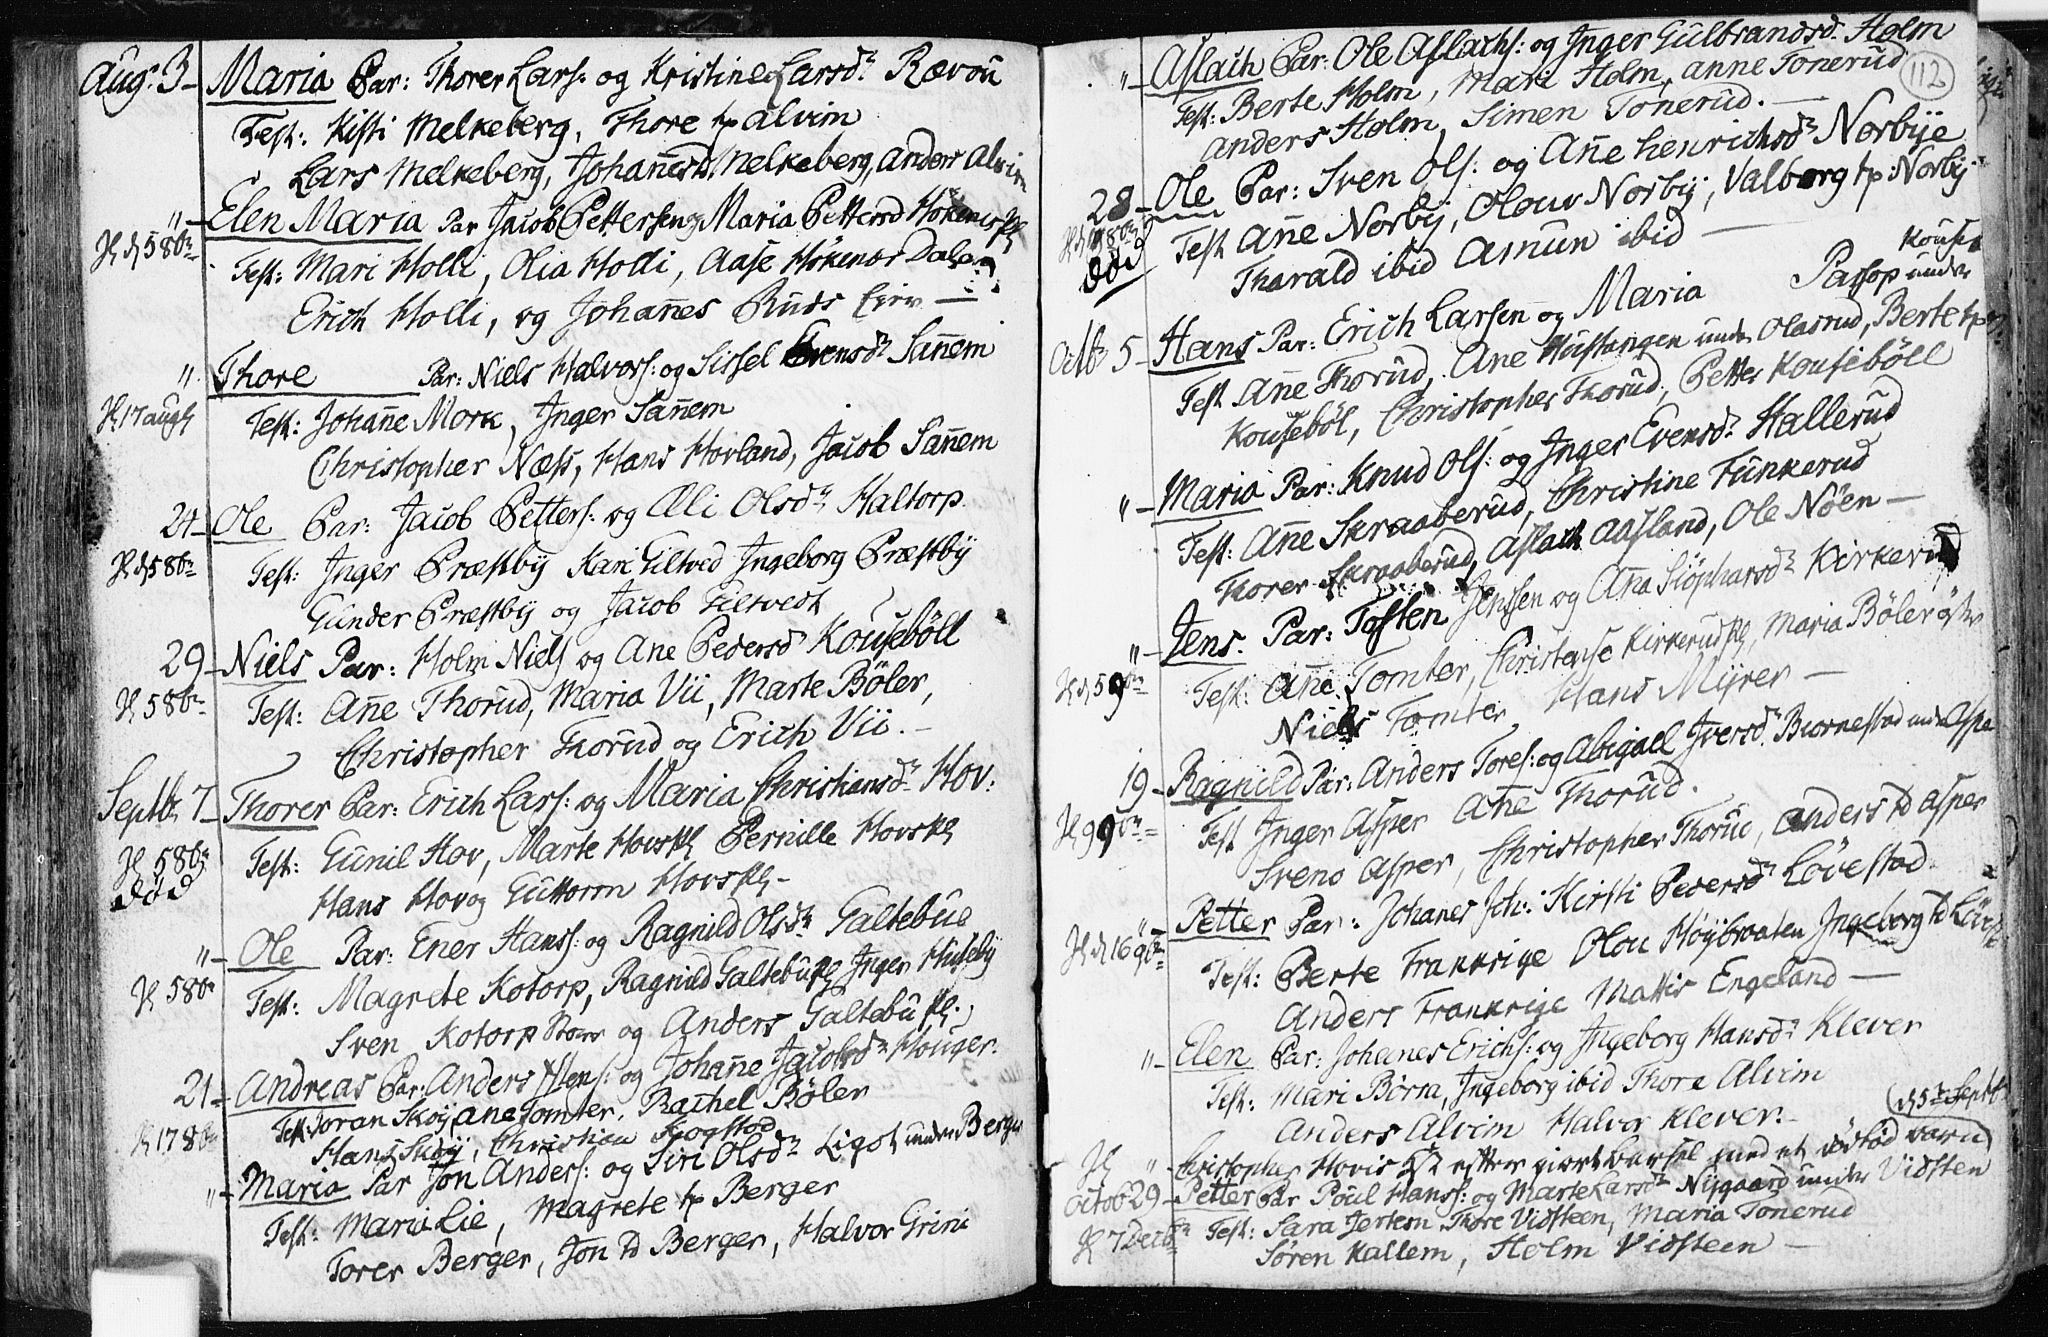 Aug: 3 – Maria Par: Thorer Lars: og Kristine Larsdr Rævou
Test: Kisti Melkeberg, Thore tp Alvim
Lars Melkeberg, Johanes td Melkeberg, Anders Alvim
" – Elen Maria Par Jacob Pettersen og Maria Pettersd Hökenes pl
H d 5 8br
Test: Mari Holli, Olia Holli, Aase Hökenes Dal og
Erich Holli, og Johañes Ruds Eier –
" Thore Par: Niels Halvors: og Sissel Evensdr Sañem
H 17 augst
Test: Johañe Mork, Inger Sañem
Christopher Næss, Hans Hovland, Jacob Sañem
24 – Ole Par: Jacob Petters: og Æli Olsdr Haltorp
H d 5 8br
Test: Inger Præstby Kari Tiltved Ingeborg Præstby
Gunder Præstby og Jacob Tiltvedt
29 – Niels Par: Holm Niels og Ane Pedersd Kousebøll
H 5 8br
Test: Añe Thorud, Maria Vii, Marte Böler,
Christopher Thorud og Erich Vii. –
Septbr 7 – Thorer Par: Erich Lars: og Maria Christiansdr Hov:
H 5 8br
död
Test: Gunil Hov, Marte Hovspl Pernille Hovspl
Hans Hov og Guttorm Hovspl –
" – Ole Par: Ener Hans: og Ragnild Olsdr Galtebue
H 5 8br
Test: Magrete Kotorp, Ragnild Galtebupl Inger Huseby
Sven Kotorp Store og Anders Galtebupl.
21 – Andreas Par: Anders Jens: og Johañe Jacobsdr Houger.
Test: Joran Skoÿ, ane Tomter, Rachel Böler
H 17 8br
Hans Skoÿ, Christian Skogstad
" – Maria Par Jon Anders: og Siri Olsdr Ligot under Berger
Test: Mari Lie, Magrete tp Berger
Torer Berger, Jon td Berger, Halvor Grini
112
" – Aslach Par: Ole Aslachs: og Inger Gulbrandsd. Holm
Test: Berte Holm, Mari Holm, anne Tonerud
Anders Holm, Simen Tonerud. –
28 – Ole Par: Sven Ols: og Añe henrichsdr Norbÿe
död
Test Añe Norbÿ, Olour Norbÿ, Valborg tp: Norbÿ
Tharald ibid Amun ibid –
Octbr 5 – Hans Par: Erich Larsen og Maria Passop under
Kouse
Test Añe Thorud, Ane Hustangen under Olasrud, Berte tp
Kousebøl, Christopher Thorud, Petter Kousebøll
" – Maria Par: Knud Ols: og Inger Evensdr Hallerud
Test: Añe Skraaberud, Christine Funkerud
Thorer Skraaberud, Aslach Aasland, Ole Nöen –
" – Jens. Par: Tosten Jenssen og Ana Siöpharsdr Kirkerud
H d 5 9br
Test: Añe Tomter, Christense Kirkerudpl, Maria Böler østre
Niels Tomter Hans Mÿrer –
19 – Ragnild Par: Anders Tores: og Abigael Iversd. Biornestad under Asper
H 9 9br
Test Inger Asper Añe Thorud.
Sveno Asper, Christopher Thorud, Anders td Asper
" – Petter Par: Johanes Joh: Kirsti Pedersdr Lövestad.
H d 16 9br
Test: Berte Frankrige Olou Höÿbraaten Ingeborg td Lövest
Anders Frankrige Mattis Engeland –
" – Elen Par: Johanes Erichs: og Ingeborg Hansdr Klever
Test: Mari Börra, Ingeborg ibid Thore Alvim
Anders Alvim Halvor Klever. –
d 5te Septbr
" – Christopher Hovis efter giort barsel med et dödföd barn
Octob 29 – Petter Par Poul Hans: og Marte Larsdr Nÿgaard under Vidsteen
H 7 Decbr
Test: Sara Thore Vidsteen, Maria Tonerud
Sören Kallem, Holm Vidsteen –